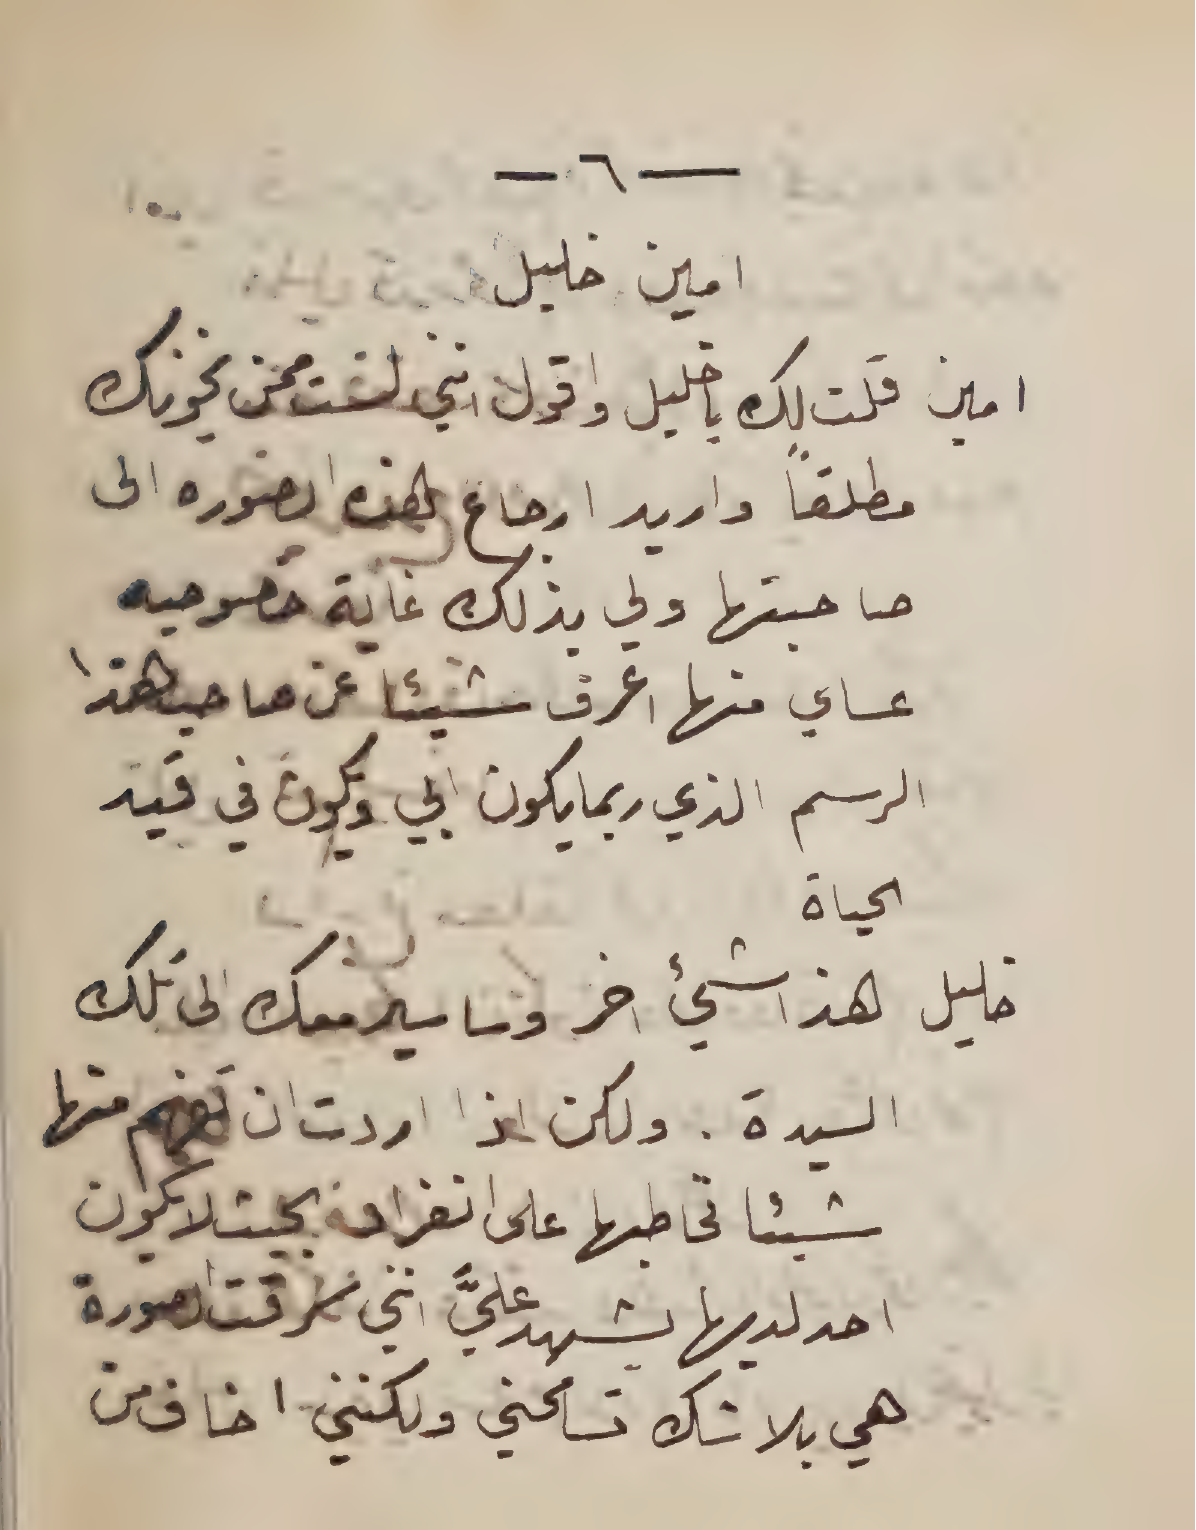 — ٦ —
امين خليل
امين قلت لك يا خليل واقول انني لست ممن يخونك
مطلقاً واريد ارجاع هذه الصوره الى
صاحبتها ولي بذلك غاية خصوصيه
عساي منها اعرف شيئا عن صاحب هذا
الرسم الذي ربما يكون ابي ويكون في قيد
الحياة
خليل هذا شيئ اخر وساسير معك الى تلك
السيدة . ولكن اذا اردت ان تفهم منها
شيئا تخاطبها على انفراد بحيث لا يكون
احد لديها يشهد عليَّ انني سرقت الصورة
هي بلا شك تسامحني ولكنني اخاف من